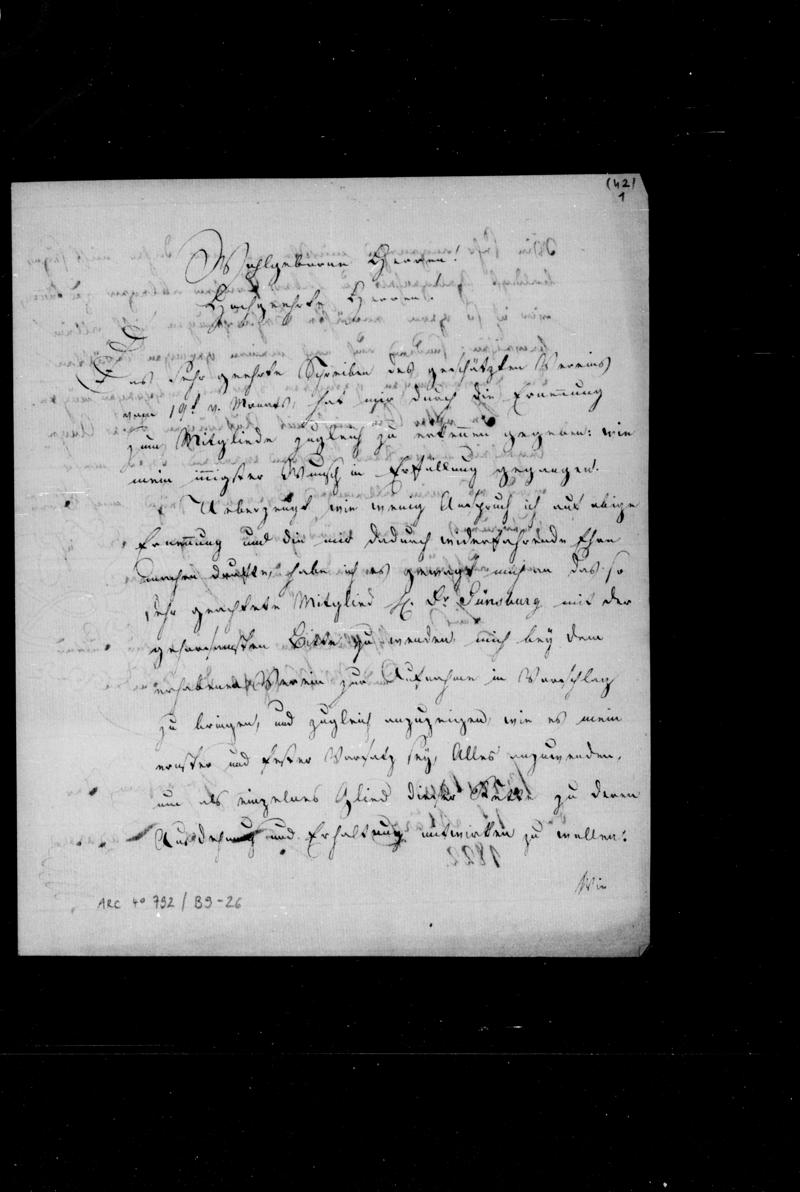 (42)
1
Wohlgeborne Herren!
Hochgeehrte Herren!
Das sehr geehrte Schreiben des geschätzten Vereins
vom 19t v. Monats, hat mir durch die Ernennung
zum Mitgliede zugleich zu erkennen gegeben: wie
mein innigster Wunsch in Erfüllung gegangen.
Ueberzeugt, wie wenig Anspruch ich auf obige
Ernennung und die mir dadurch widerfahrende Ehre
machen durfte, habe ich es gewagt mich an das so
sehr geachtete Mitglied H. Dr Günsburg mit der
gehorsamsten Bitte zu wenden mich bey dem
erhabenen Verein zur Aufnahme in Vorschlag
zu bringen, und zugleich anzuzeigen, wie es mein
ernster und fester Vorsatz sey, Alles anzuwenden,
um als einzelnes Glied dieser Kette zu deren
Ausdehnung und Erhaltung mitwirken zu wollen.
Wie
ARC 4o 792 / B9-26